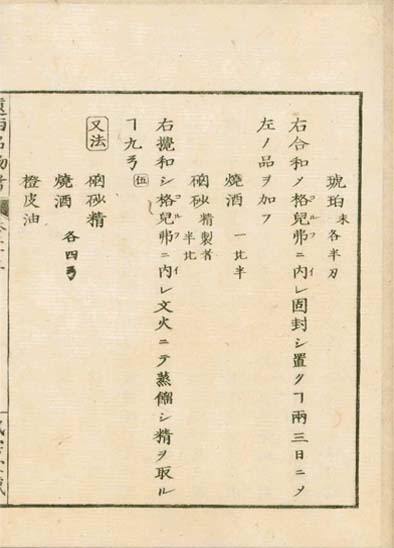 琥珀末 各半刃
右合和メ格兒弗ニ内レ固封シ置クヿ兩三日ニメ
左ノ品ヲ加フ
燒酒 一比半
硇砂 精製者 半比
右攪和シ格兒弗ニ内レ文火ニテ蒸餾シ精ヲ取ル
ヿ九弓 伍
又法 硇砂精
燒酒 各四弓
橙皮油